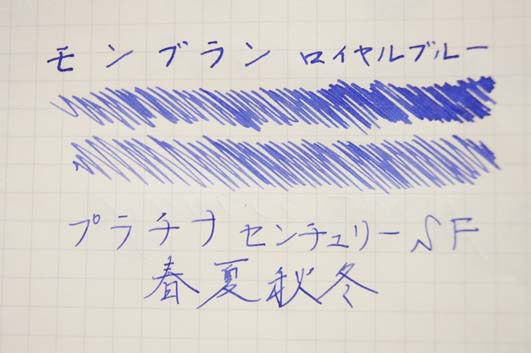 モンブラン ロイヤルブルー
プラチナ センチュリー SF
春夏秋冬